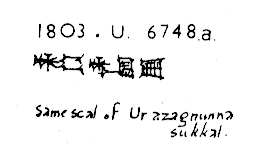 1803. U. 6748.a.
Same seal of Urazagnunna
sukkal.